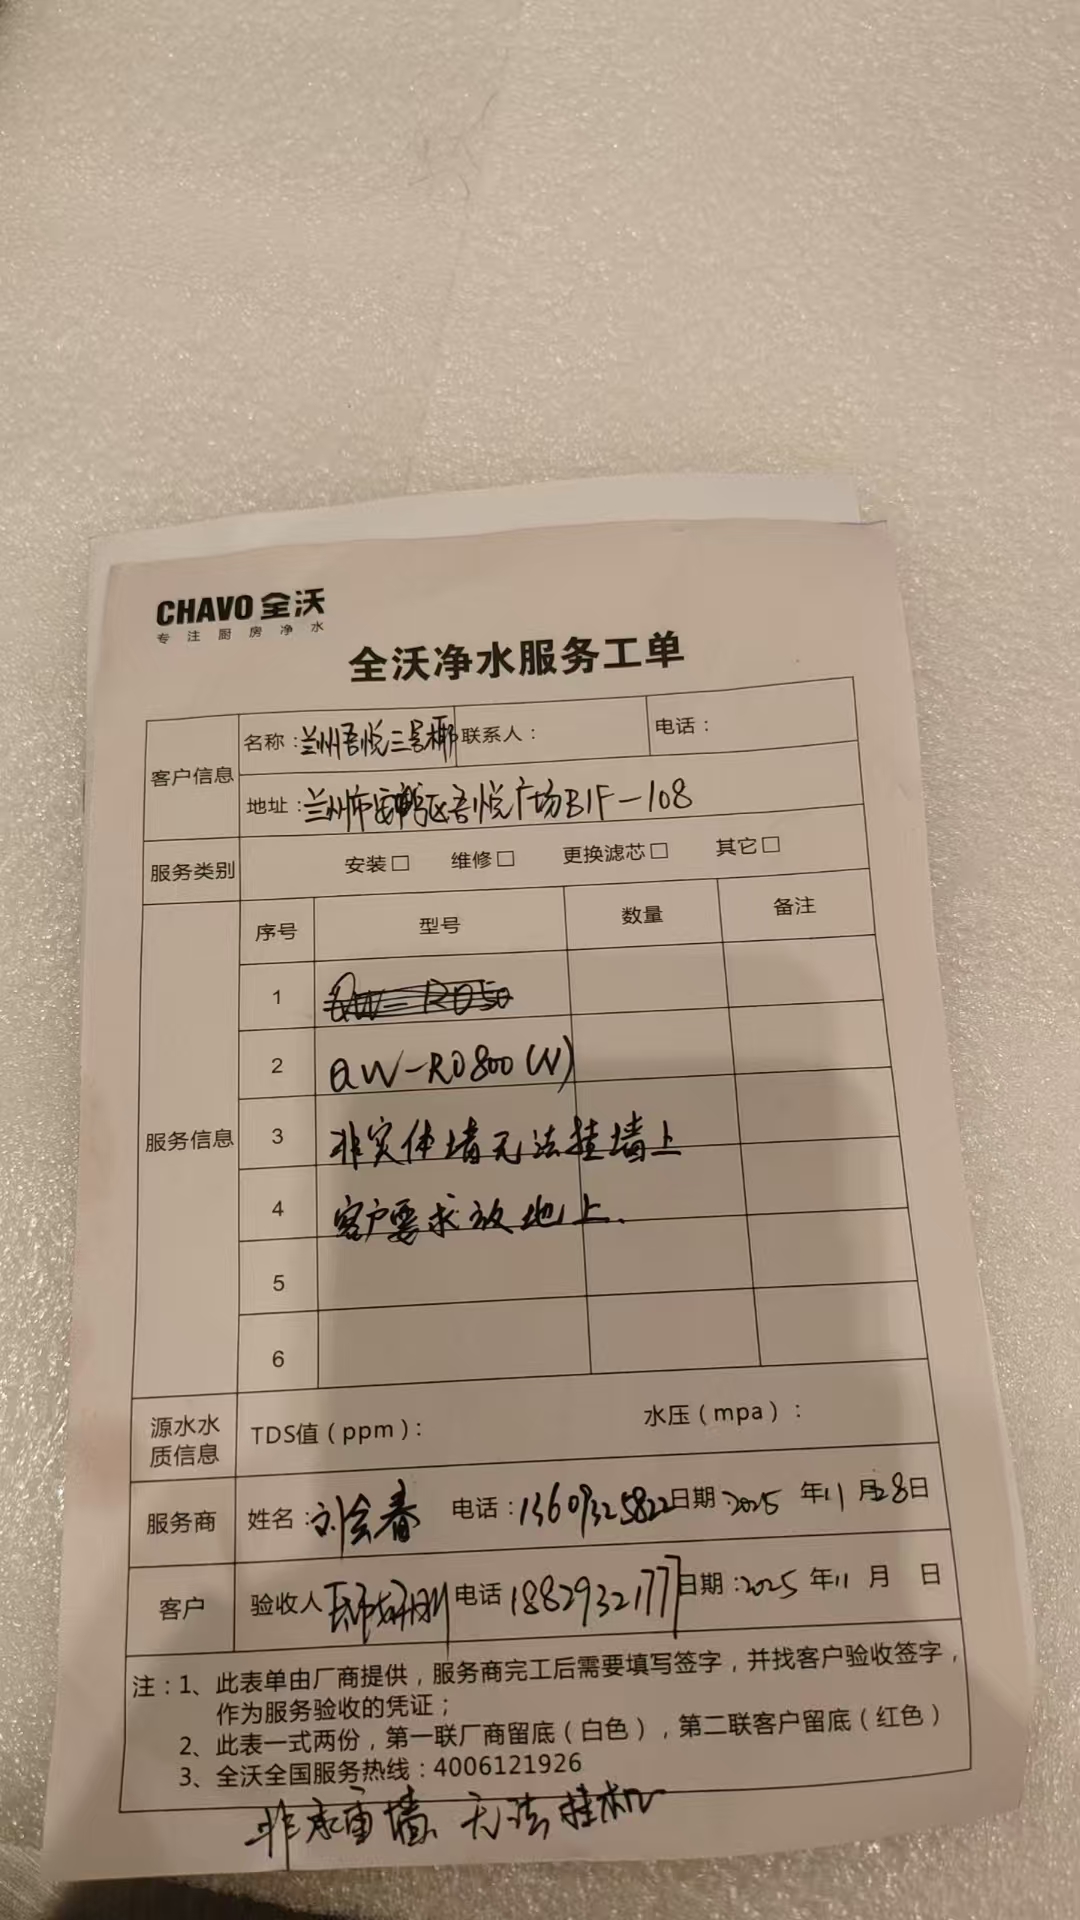 CHAVO 全沃
专注厨房净水
全沃净水服务工单
客户信息
名称：兰州吾悦三号椰 联系人： 电话：
地址：兰州市安宁区吾悦广场B1F-108
服务类别 安装□ 维修□ 更换滤芯□ 其它□
服务信息
序号 型号 数量 备注
1
2 QW-RO800(W)
3 非实体墙无法挂墙上
4 客户要求放地上.
5
6
源水水质信息 TDS值（ppm）： 水压（mpa）：
服务商 姓名：刘会春 电话：13609325822 日期：2025 年11 月28日
客户 验收人 电话 18829321777 日期：2025 年11 月 日
注：1、此表单由厂商提供，服务商完工后需要填写签字，并找客户验收签字，
作为服务验收的凭证；
2、此表一式两份，第一联厂商留底（白色），第二联客户留底（红色）
3、全沃全国服务热线：4006121926
非承重墙 无法挂机